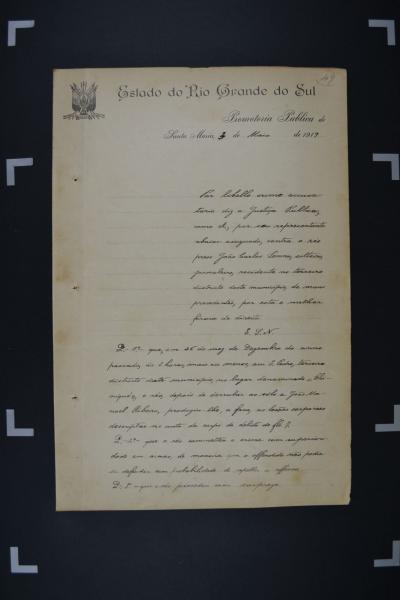 49
Estado do Rio Grande do Sul
Promotoria Publica de
Santa Maria, 3 de Maio de 1912
Por libello crime accusa-
torio diz a Justiça Publica,
como A, por seu representante
abaixo assignado, contra o réo
preso João Carlos Lemes, solteiro,
jornaleiro, residente no terceiro
districto deste municipio, de
procedente, por esta e melhor
forma de direito
E. S. N.
P. 1º que, em 26 do mez de Dezembro do anno
passado, às horas, mais ou menos, em S. Pedro, terceiro
districto deste municipio, no lugar denominado
o réo, depois de derrubar ao solo a João Ma-
noel Ribeiro, produziu-lhe, a faca, as lesões corporaes
descriptas no auto de corpo de delicto de fls 7.
P. 2º que o réo commetteu o crime com superiori-
dade em armas, de maneira que o offendido não podia
se defender com probabilidade de repellir a offensa.
P. 3º que o réo procedeu com surpreza